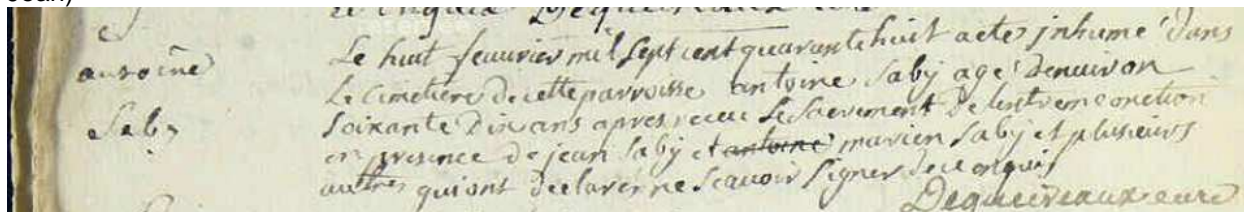 Jean)
Dequeireaux curé
antoine
Saby
Le huit feuvrier mil sept cent quarante huit a ete jnhumé dans
Le Cimetière de cette parroisse antoine Saby agé denuiron
soixante Dix ans apres receu Le Sacrement De lextremeonction
en presence de jean Saby et antoine marien Saby et plusieurs
autres qui ont declarer ne scavoir signer de ce enquis
Dequeireaux curé